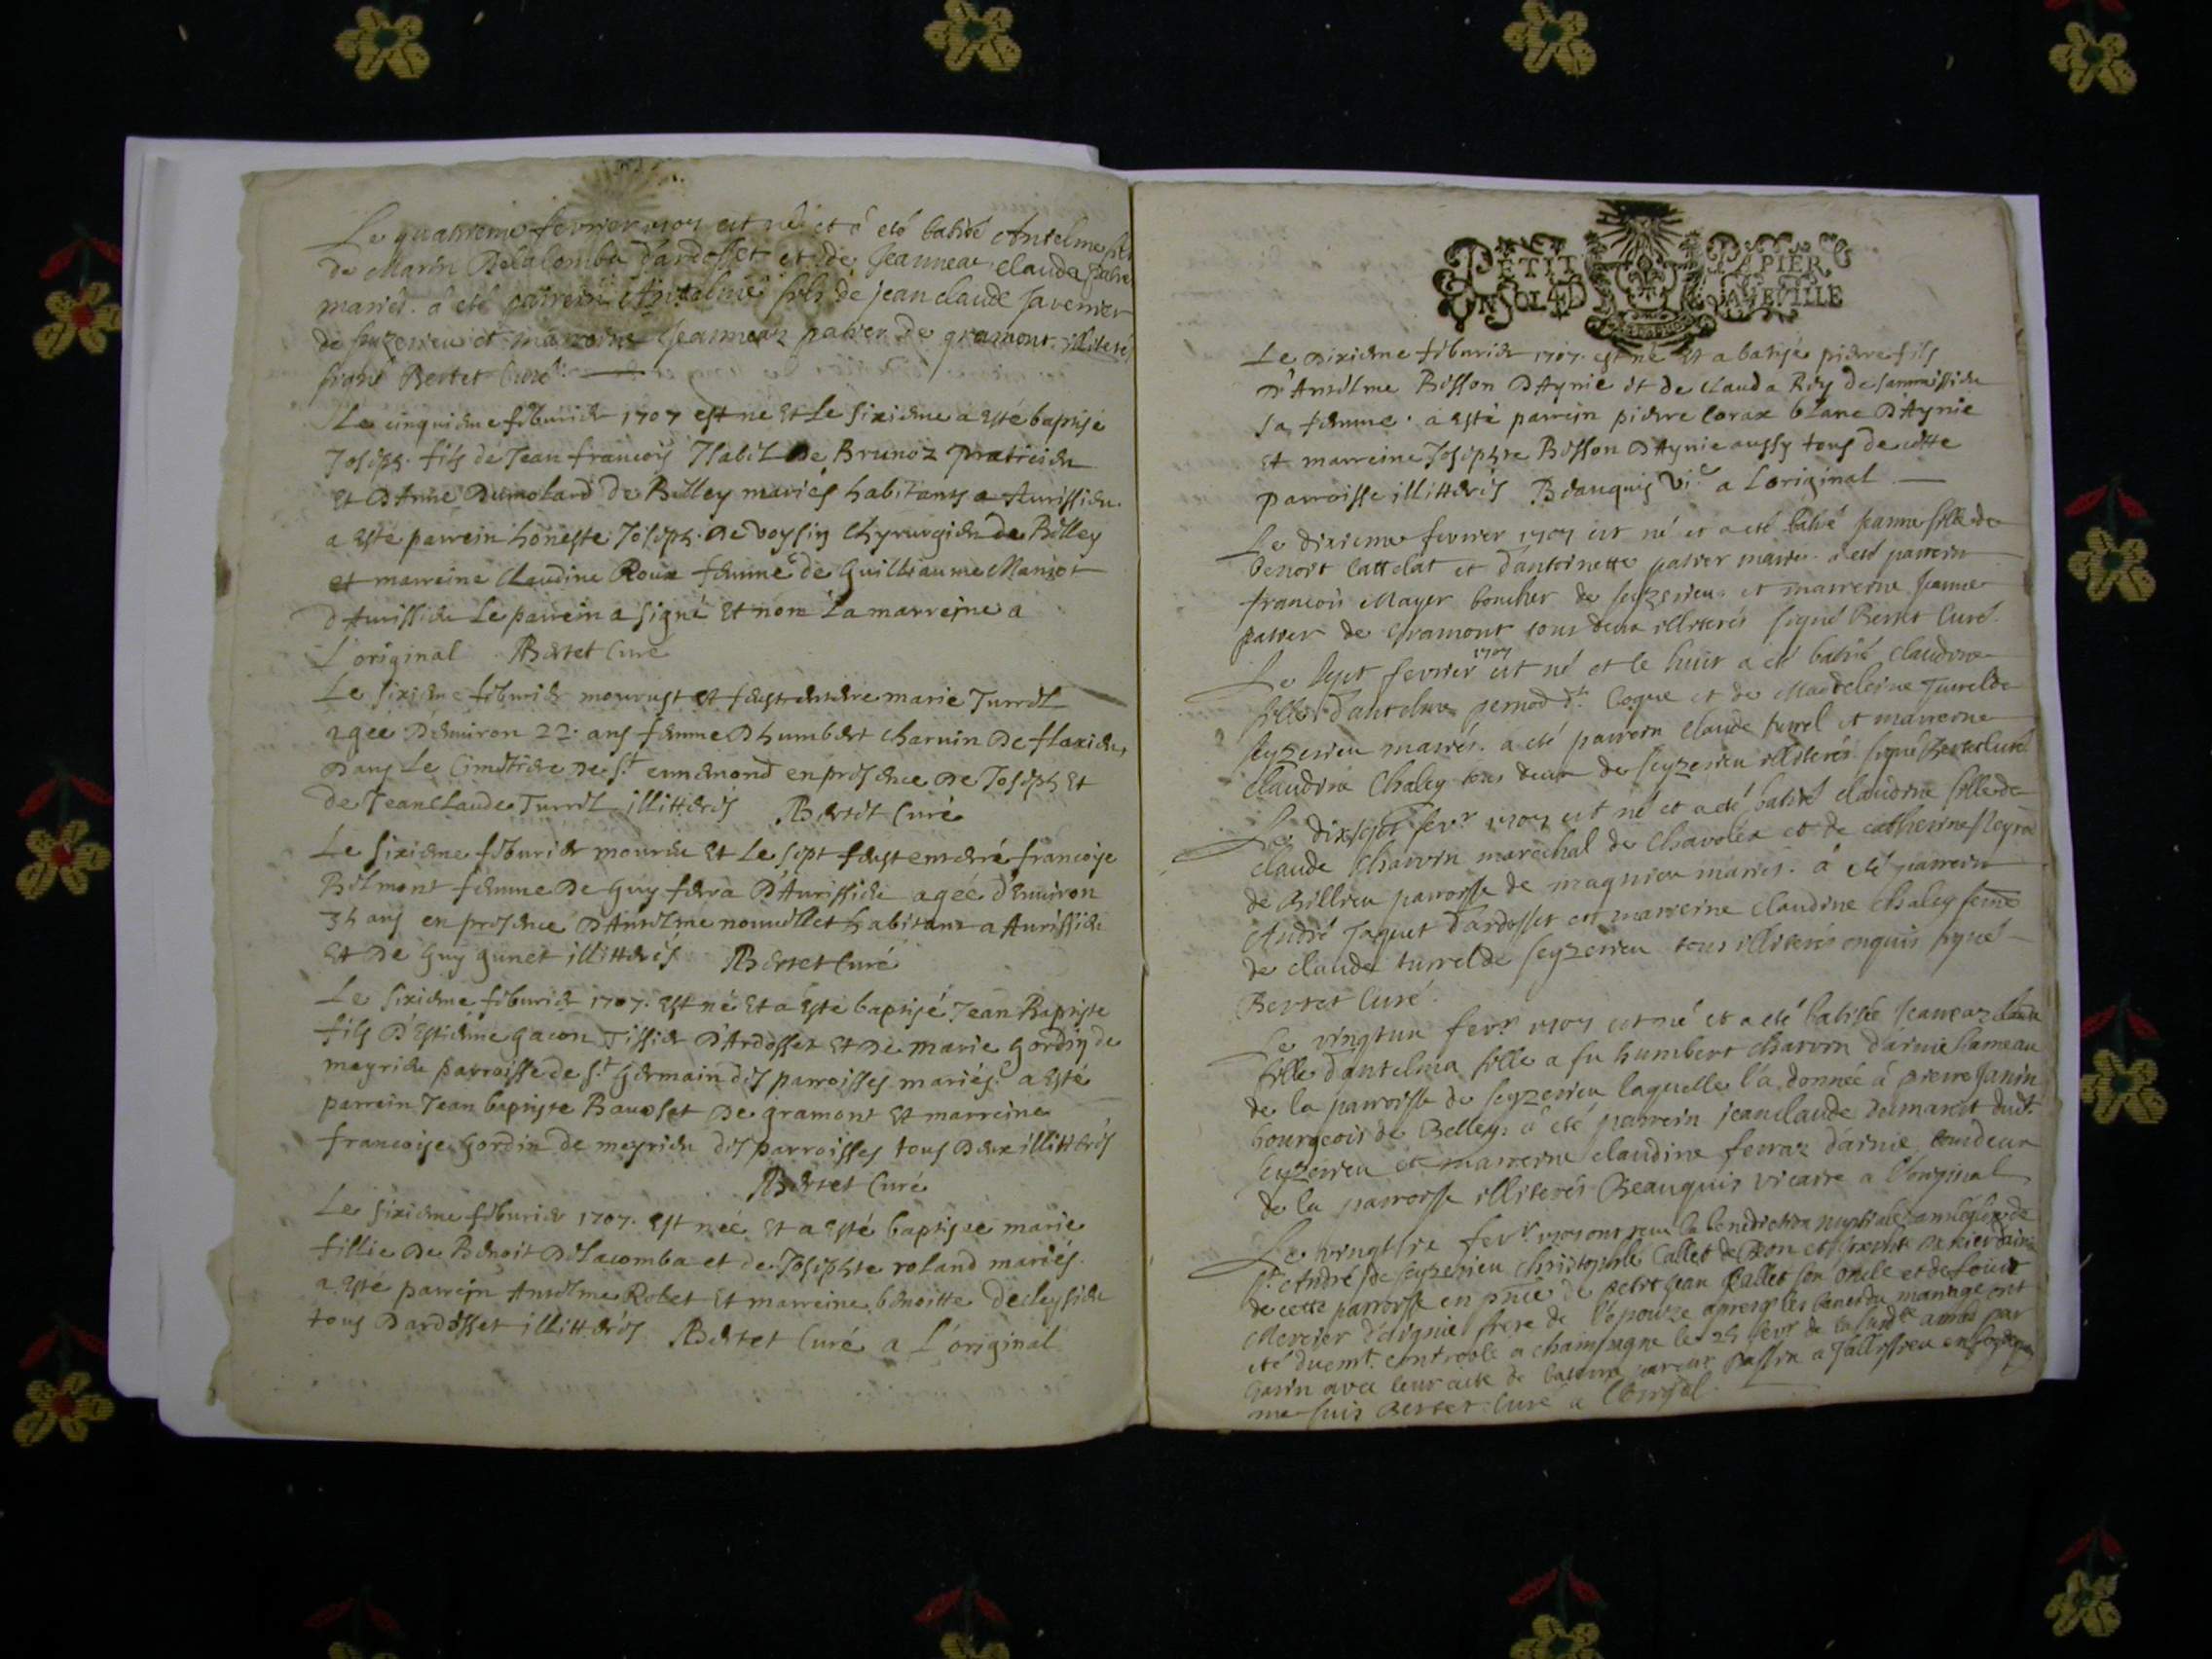 Le quatrieme fevrier 1707 est né et a eté batisé Antelme fils
de Marin Delalomba d'ardosset et de Jeanneaz claude
mariés. a eté parrein Antelme fils de jean claude Javenier
de seyzerieu et marreine Jeanneaz paster de gramont illiterés
signé Bertet Curé
Le cinquieme feburier 1707 est né et le sixieme a esté baptisé
Joseph fils de Jean francois De Brunoz praticien
et D'Anne Dumolard de Belley mariés habitants a Aurissieu
a esté parrein honeste Joseph De voysin Chyrurgien de Belley
et marreine Claudine Roux femme de Guilliaume Manjot
d'Aurissieu Le parrein a signé et non La marreine a
L'original Bertet Curé
Le sixieme feburier mourust et fust enterre marie Turrel
agée D'environ 22 ans femme D'humbert charuin De flaxieu,
Dans Le Cimetiere De St en presence De Joseph et
de Jean Claude Turrel illitterés Bertet Curé
Le sixieme feburier mourut et Le sept fust enterré francoise
Belmont femme De Guy ferra D'Aurissieu agée d'environ
34 ans en presence D'Antelme nouuellet habitant a Aurissieu
Et De Guy gunet illitterés Bertet Curé
Le sixieme feburier 1707. est né et a esté baptisé Jean Baptiste
fils D'Estienne gacon Tissier D'Ardosset et De marie Gordin de
meyrieu parroisse de St Germain des parroisses mariés. a esté
parrein Jean baptiste Bauoset De gramont et marreine
francoise Gordin de meyrieu des parroisses tous Deux illitterés
Bertet Curé
Le sixieme feburier 1707. est neé et a esté baptisée marie
fillie De Benoit Delacomba et de Josephte roland mariés.
a esté parrein Antelme Robet et marreine benoitte
tous D'ardosset illitterés Bertet Curé a L'original
PETIT PAPIER
UN SOL 4 D LA FEVILLE
Le Dixieme feburier 1707. est né et a batisé pierre fils
D'Antelme Bisson D'Aynie et de Clauda Rey de sammissieu
sa femme. a esté parrein pierre Corax blanc D'Aynie
et marreine Josephte Bisson D'Aynie aussy tous de cette
parroisse illitterés Beauquis Vi.e a Loriginal
Le dixieme fevrier 1707 est né et a eté batisé Jeanne fille de
benoit Cattelat et d'antoinette patter mariés. a eté parrein
francois Mayer boucher de seyzerieu et marreine Jeanne
patter de Gramont tous deux illiterés signé Bertet Curé.
Le sept fevrier 1707 est né et le huit a eté batisé claudine
fille d'antelme pernod dt Coque et de Madeleine Turrel de
seyzerieu mariés. a eté parrein Claude turrel et marreine
claudine Chaley tous deux de seyzerieu illiterés signé Bertet Curé
Le dixsept fevr 1707 est né et a eté batisé claudine fille de
claude Charvin marechal de Chavolex et de catherine Neyro
de Billieu parroisse de magnieu mariés. a eté parrein
André Jaquet d'ardosset et marreine claudine Chaley feme
de claude turrel de seyzerieu tous illiterés enquis signé
Bertet Curé.
Le vingtun fevr 1707 est né et a eté batisée Jeanaz Claude
fille d'antelma fille a fu humbert charvin d'ainie hameau
de la parroisse de seyzerieu laquelle l'a donnée à pierre Janin
bourgeois de Belley. a eté parrein jean claude Dumarest dudt
seyzerieu et marreine claudine ferraz d'ainie tous deux
de la parroisse illiterés Beauquis vicaire a l'original
Le fevr 1707 ont receu la benediction nuptiale en l'église de
St André de seyzerieu Christophle Callet de et
de cette parroisse en pnce de petit Jean Callet son oncle et de
Mercier d'aignie frere de l'epouze apres les bans du mariage ont
eté duemt controole a champagne le 25 fevr de par
Garin avec leur acte de
me suis Bertet Curé a l'original